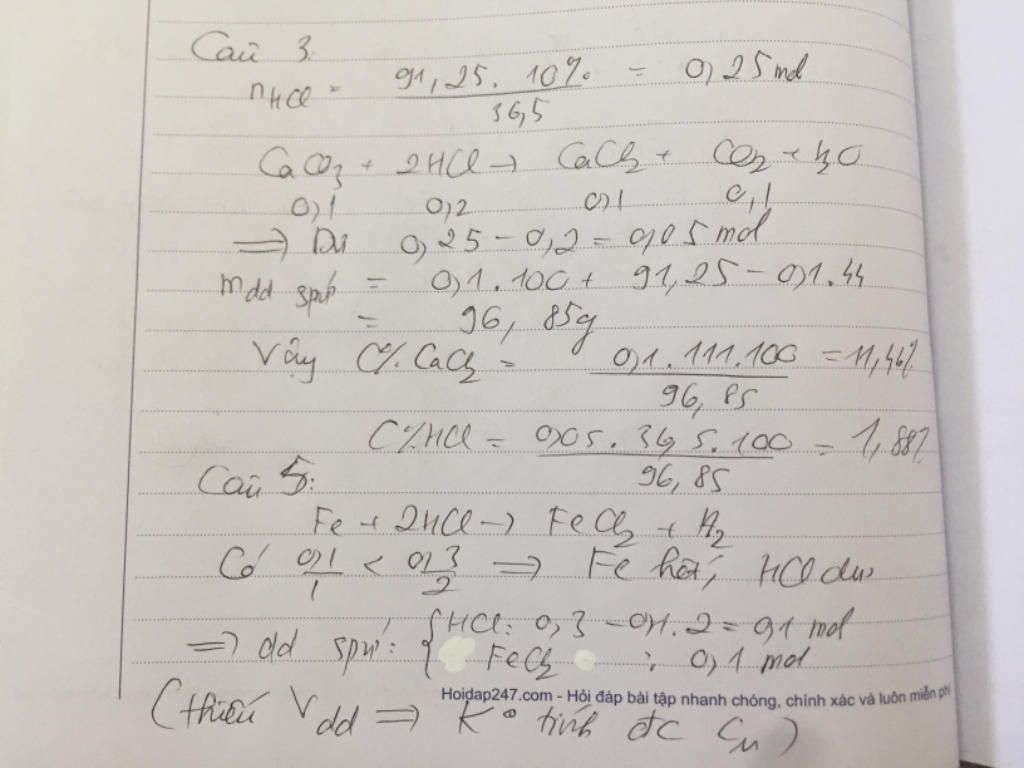 Câu 3.
nHCl = 91,25. 10% / 36,5 = 0,25 mol
CaCO3 + 2HCl → CaCl2 + CO2 + H2O
0,1 0,2 0,1 0,1
=> Dư 0,25 - 0,2 = 0,05 mol
mdd spứ = 0,1.100 + 91,25 - 0,1.44
= 96,85g
Vậy C% CaCl2 = 0,1.111.100 / 96,85 = 11,46%
C% HCl = 0,05.36,5.100 / 96,85 = 1,88%
Câu 5:
Fe + 2HCl → FeCl2 + H2
Có 0,1/1 < 0,3/2 => Fe hết, HCl dư
=> dd spứ: { HCl: 0,3 - 0,1.2 = 0,1 mol
FeCl2 : 0,1 mol
Hoidap247.com - Hỏi đáp bài tập nhanh chóng, chính xác và luôn miễn phí
(thiếu Vdd => K° tính đc CM)